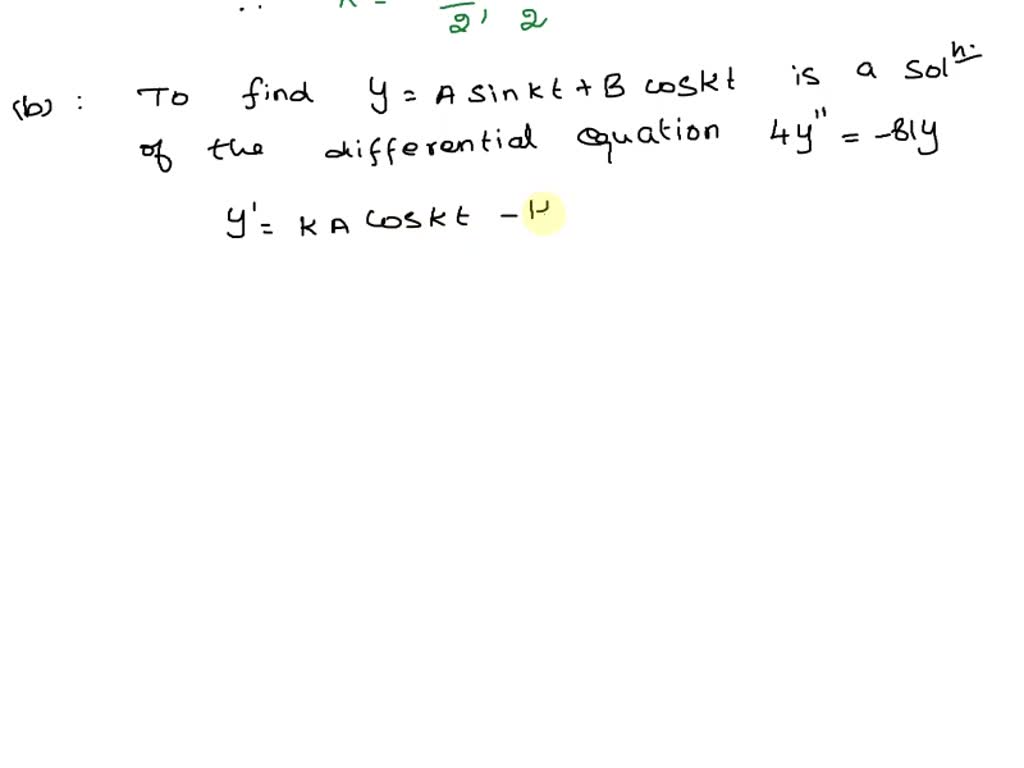 ∴ k = 2, 2
(b) : To find y = A sinkt + B coskt is a solⁿ.
of the differential equation 4y" = -81y
y' = kA coskt -